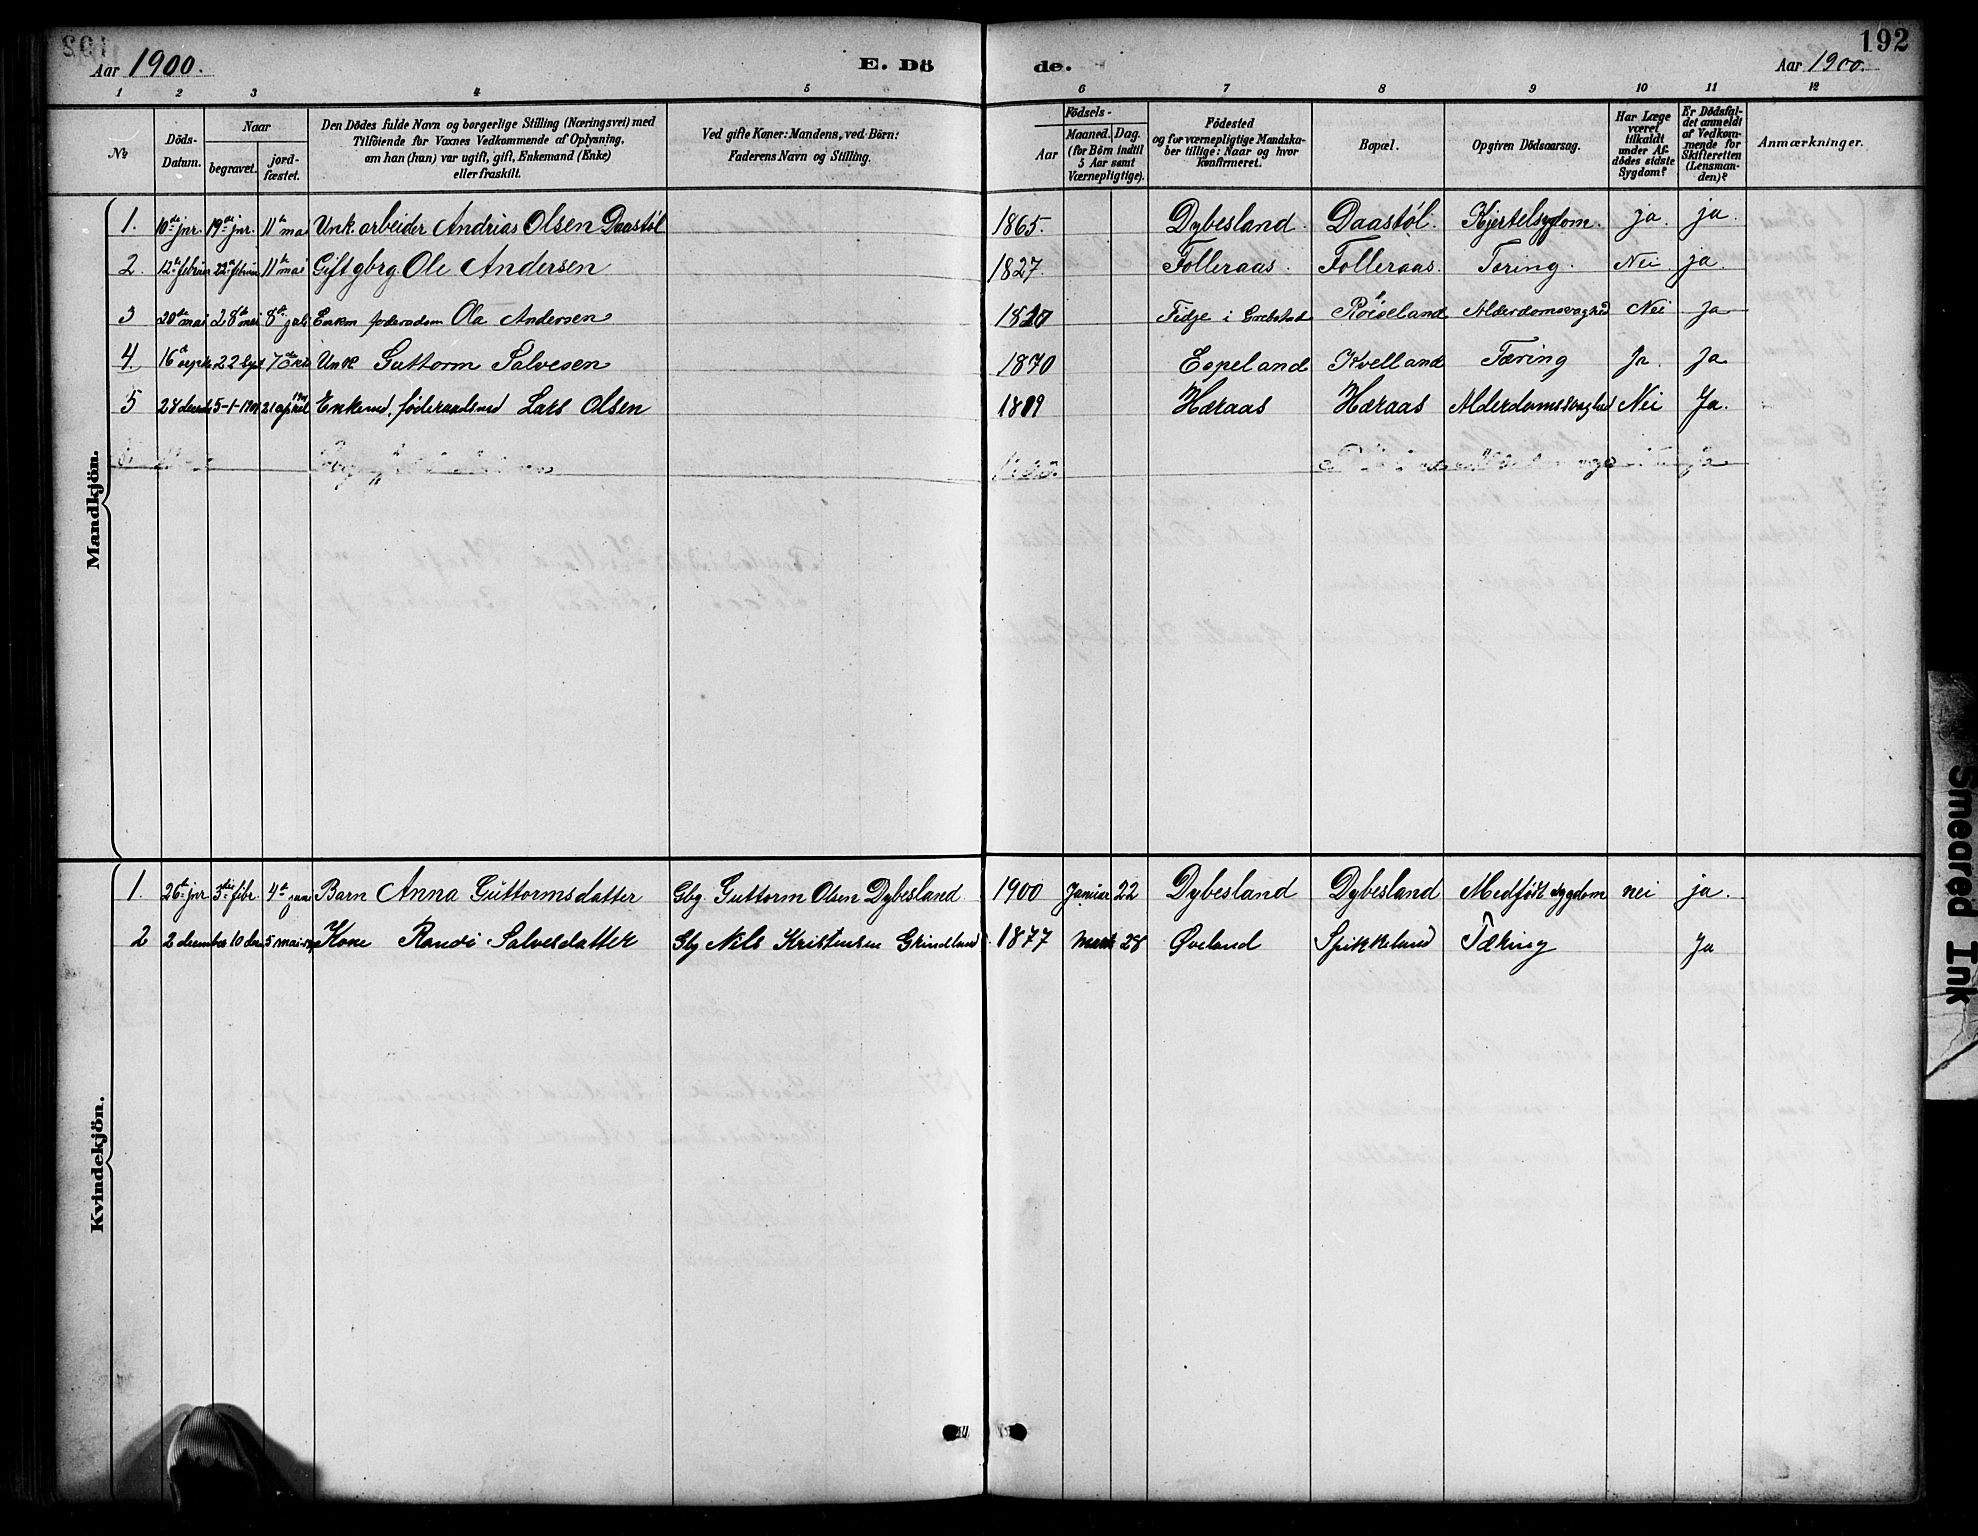 192
Aar 1900. E. Dö de. Aar 1900.
1 2 3 4 5 6 7 8 9 10 11 12
№
Döds-Datum.
Naar begravet. jordfæstet.
Den Dödes fulde Navn og borgerlige Stilling (Næringsvei) med
Tilföiende for Voxnes Vedkommende af Oplysning,
om han (hun) var ugift, gift, Enkemand (Enke)
eller fraskilt.
Ved gifte Koner: Mandens, ved Börn:
Faderens Navn og Stilling.
Födsels-
Aar
Maaned. Dag.
(for Börn indtil
5 Aar samt
Værnepligtige).
Födested
og for værnepligtige Mandskaber tillige: Naar og hvor
konfirmeret.
Bopæl.
Opgiven Dödsaarsag.
Har Læge
været
tilkaldt
under Afdödes sidste
Sygdom?
Er Dödsfaldet anmeldt
af Vedkommende for
Skifteretten
(Lensmanden)?
Anmærkninger.
Mandkjön.
1. 10de jnr. 19de jnr. 11te mai Unk. arbeider Andrias Olsen Daastøl 1865. Dybesland. Daastøl. Kjertelsygdom. ja. ja.
2. 12te februar 22de februar 11te mai Gift gbrg Ole Andersen 1827. Folleraas. Folleraas. Tæring. Nei ja.
3 20de mai 28de mai 8de juli Enkm føderadsm Ola Andersen Fidje i Røiseland Alderdomsvaghed Nei Ja
4. 16de septb 22 sept 7de Unk Guttorm Salvesen 1870 Espeland Kvelland Tæring Ja. Ja
5 28 decb 5-1-1901 21 april 1901 Enkemd, føderaadsmd Lars Olsen 1819 Hæraas Hæraas Alderdomssvaghed Nei Ja.
Kvindekjön.
1. 26de jnr 3die febr. 4de juni Barn Anna Guttormsdatter Gbg. Guttorm Olsen Dybesland 1900 Januar 22 Dybesland Dybesland Medfødt sygdom nei ja.
2 2 december 10 dec 5 mai Kone Randi Salvesdatter Gbg Nils Kristensen Grindland 1877 Marts 28 Øveland Spikkeland Tæring Ja
Smeared Ink